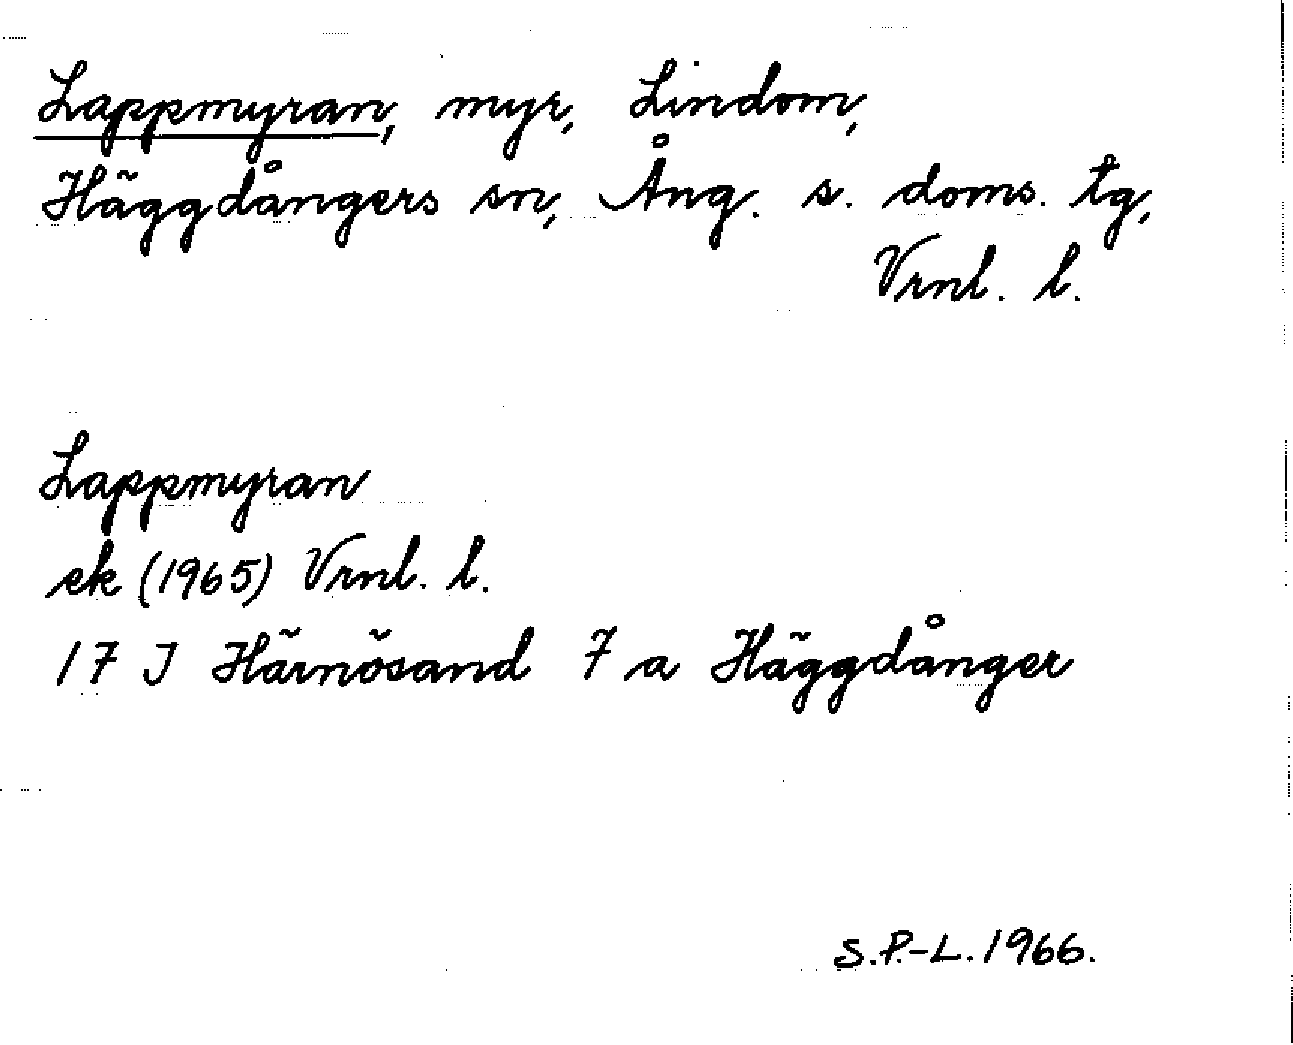 Lappmyran, myr, Lindom,
Häggdångers sn, Ång. s. doms. tg,
Vrnl. l.
Lappmyran
ek (1965) Vrnl. l.
17 J Härnösand 7 a Häggdånger
S.P.-L. 1966.